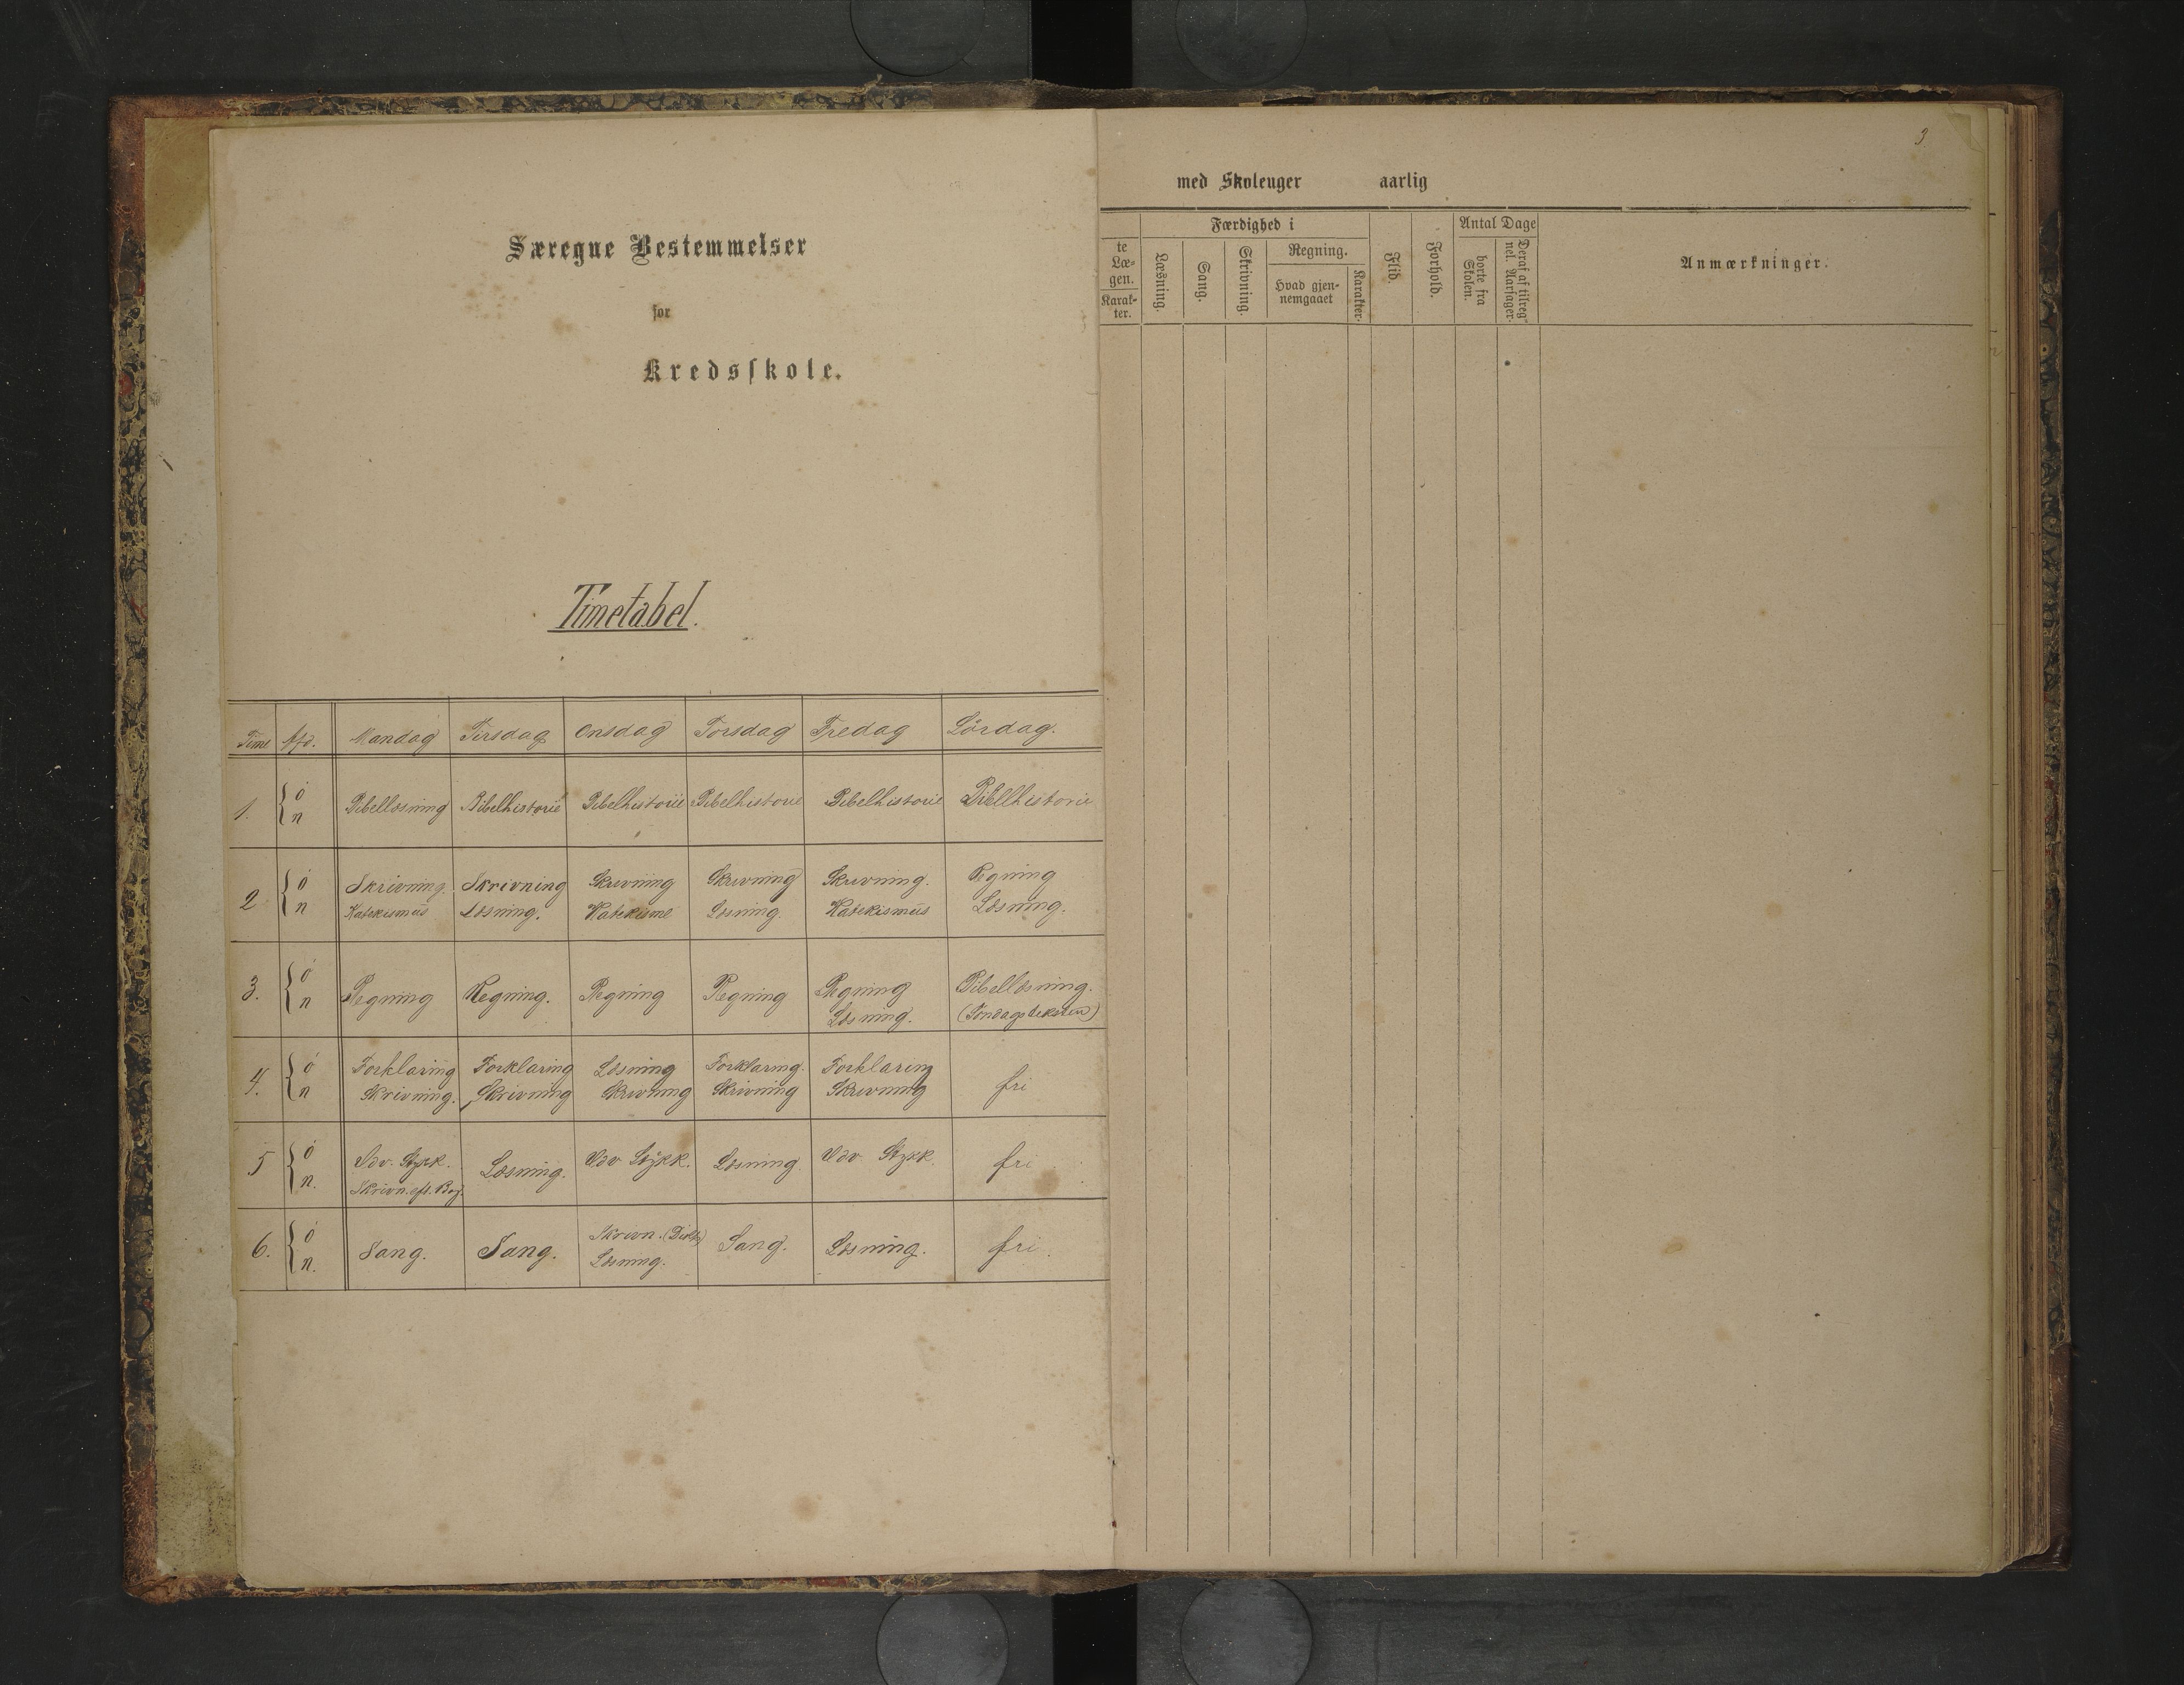 Særegne Bestemmelser
for
Kredsskole.
Timetabel.
Time Afd. Mandag Tirsdag Onsdag Torsdag Fredag Lördag.
1. { ö n Bibellæsning Bibelhistorie Bibelhistorie Bibelhistorie Bibelhistorie Bibelhistorie
2 { ö Skrivning. Skrivning Skrivning Skrivning Skrivning. Regning
n Katekismus Læsning. Katekisme Læsning. Katekismus Læsning.
3. { ö Regning Regning. Regning Regning Regning Bibellæsning.
n Læsning. (Söndagsteksten)
4. { ö Forklaring Forklaring Læsning Forklaring. Forklaring fri
n Skrivning. Skrivning Skrivning Skrivning Skrivning
5 { ö Udv. Stykk. Læsning. Udv Stykk. Læsning Udv. Stykk. fri
n. Skrivn. eft. Bog.
6. { ö Sang. Sang. Skrivn. (Dikt) Sang. Læsning. fri.
n. Læsning.
3
med Skoleuger aarlig
te Læ-
gen.
Karak-
ter.
Færdighed i
Læsning.
Sang.
Skrivning.
Regning.
Hvad gjen-
nemgaaet
Karakter.
Flid.
Forhold.
Antal Dage
borte fra
Skolen.
Deraf af tilreg-
nel. Aarsager.
Anmærkninger.